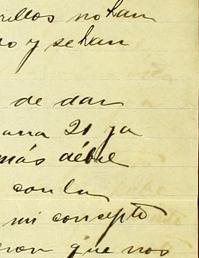 rillos no han
o y se han
de dar
ana 21 ya
más débil
con la
mi concepto
ron que nos